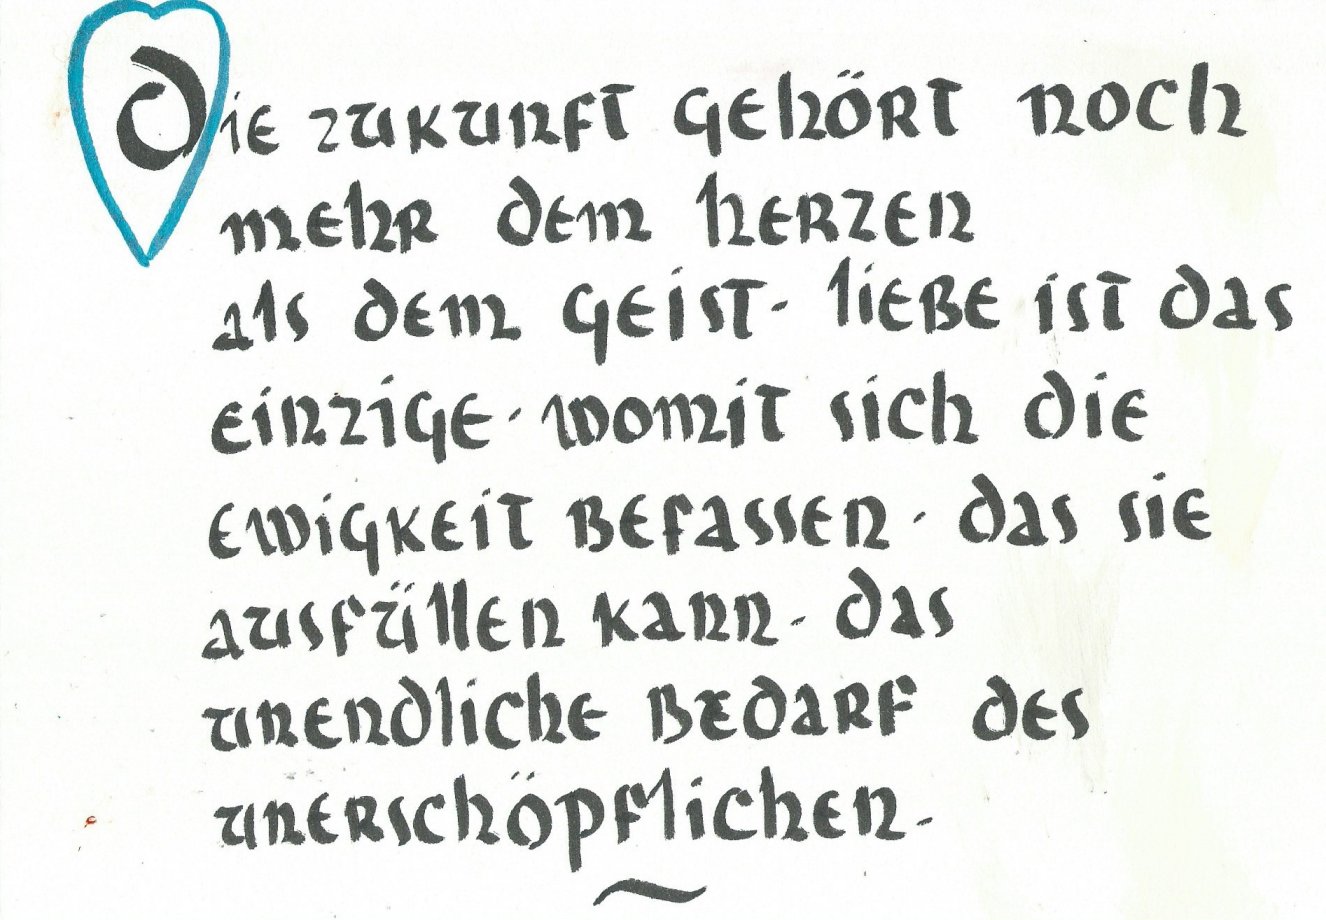 Die zukunft gehört noch
mehr dem herzen
als dem geist. liebe ist das
einzige. womit sich die
ewigkeit befassen. das sie
ausfüllen kann. das
unendliche bedarf des
unerschöpflichen.